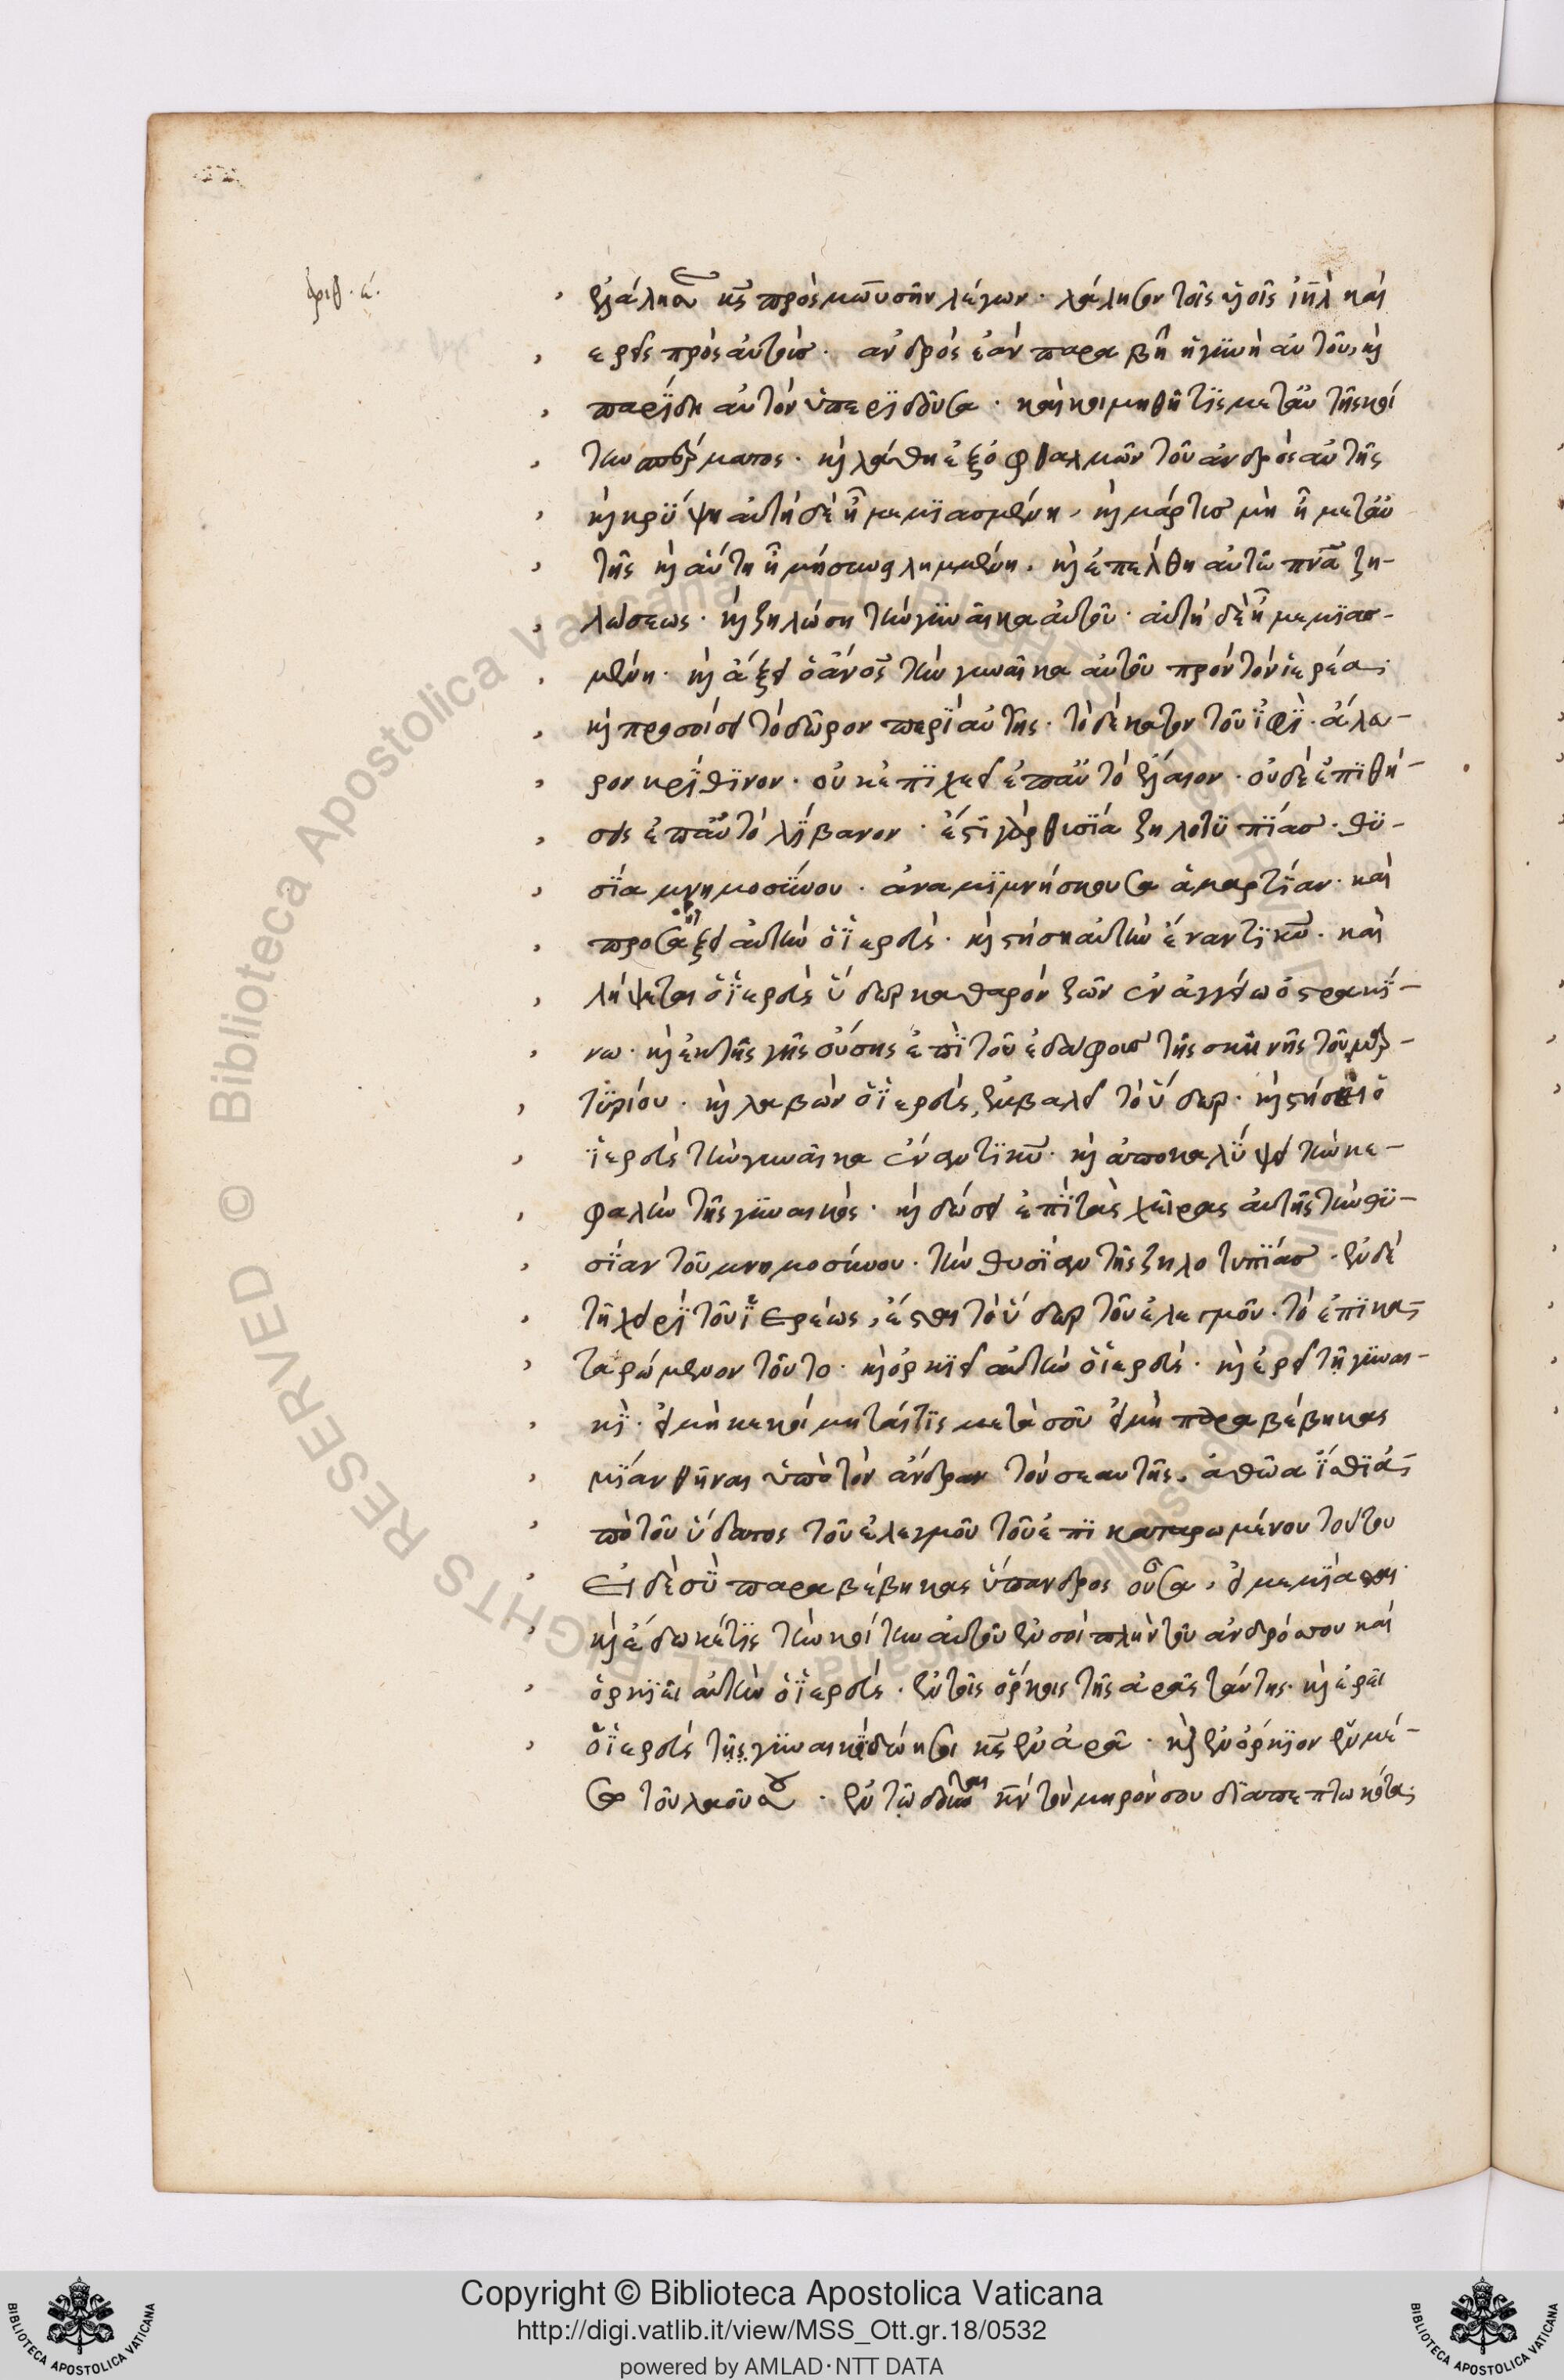 ἀριθ. ε.
ἐλάλησεν κς πρὸς μωϋσῆν λέγων· λάλησον τοῖς υἱοῖς ιηλ καὶ
ερεῖς πρὸς αὐτοὺσ· ανδρὸς ἐὰν παραβῆ ἡ γϋνὴ αὐτοῦ, κὶ
παρΐδη αὐτὸν ὑπερϊδοῦσα· καὶ κοιμηθῆ τὶς μεταὐτῆς κοί
την σπέρματος· κὶ λάθη ἐξ ὀφθαλμῶν τοῦ ἀνδρὸς αὐτῆς
κὶ κρΰψη αὐτὴ δὲ ἦ μεμϊασμένη, κὶ μάρτυσ μὴ ἦ μεταὐ
τῆς κὶ αὐτὴ ἦ μὴ συνειλημμένη. κὶ ἐπέλθη αὐτῶ πνα ζη-
λώσεως· κὶ ζηλώση τὴν γϋναῖκα αὐτοῦ· αὐτὴ δὲ ἦ μεμϊασ-
μένη· κὶ ἄξει ὁ ἄνος τὴν γυναῖκα αὐτοῦ πρὸν τὸν ἱερέα·
κὶ προσοίσει τὸ δῶρον περὶ αὐτῆς· τὸ δέκατον τοῦ ϊφὶ· ἄλευ-
ρον κρΐθϊνον· οὐκ ἐπϊχεεῖ ἐπαὐτὸ ἔλαιον· οὐδὲ ἐπϊθή-
σεις ἐπαὐτὸ λΐβανον· ἔστι γὰρ θυσϊά ζηλοτϋπΐασ· θϋ-
σΐα μνημοσΰνου· ἀναμϊμνήσκουσα ἁμαρτΐαν· καὶ
προσάξει αὐτὴν ὁ ϊερεὺς· κὶ στήση αὐτὴν ἔναντϊ κυ· καὶ
λήψεται ὁ ϊερεὺς ὕδωρ καθαρὸν ζῶν ἐν ἀγγείω ὀστρακΐ-
νω· κὶ ἐκ τῆς γῆς οὔσης ἐπὶ τοῦ ἐδάφουσ τῆς σκηνῆς τοῦ μαρ-
τϋρίου· κὶ λαβὼν ὁ ϊερεὺς, ἐμβαλεῖ τὸ ὕδωρ· κὶ στήσει ὁ
ϊερεὺς τὴν γυναῖκα ἔναντϊ κυ· κὶ ἀποκαλΰψει τὴν κε-
φαλὴν τῆς γϋναικὸς· κὶ δώσει ἐπὶ τὰς χεῖρας αὐτῆς τὴν θϋ-
σΐαν τοῦ μνημοσύνου· τὴν θυσΐαν τῆς ζηλοτυπΐασ· ἐν δὲ
τῆ χειρΐ τοῦ ϊερέως, ἔσται τὸ ὕδωρ τοῦ ἐλεγμοῦ· τὸ ἐπϊκα-
ταρώμενον τοῦτο· κὶ ὁρκϊεῖ αὐτὴν ὁ ἱερεὺς· κὶ ἐρεῖ τῆ γϋναι-
κΐ· εἰ μὴ κεκοίμηταί τϊς μετὰ σοῦ εἰ μὴ παραβέβηκας
μϊανθῆναι ὑπὸ τὸν ἄνδραν τὸν σεαυτῆς. ἀθῶα ΐσθϊ ἀ-
πὸ τοῦ ὕδατος τοῦ ἐλεγμοῦ τοῦ ἐπϊκαταρωμένου τούτου
Εἰ δὲ σῢ παραβέβηκας ὕπανδρος οὖσα, εἰ μεμΐανσαι·
κὶ ἔδωκέ τϊς τὴν κοίτην αὐτοῦ ἐν σοὶ πλὴν τοῦ ἀνδρός σου καὶ
ὁρκϊεῖ αὐτὴν ὁ ϊερεὺς· ἐν τοῖς ὅρκοις τῆς ἀρᾶς ταύτης· κὶ ἐρεῖ
ὁ ϊερεὺς τῆς γϋναικΐ δώη σοι κς ἐν ἀρᾶ· κὶ ἐνόρκϊον ἐν μέ-
σω τοῦ λαοῦ σου· ἐν τῶ δοῦναι κν τὸν μηρόν σου δϊαπεπτωκότα·
Copyright © Biblioteca Apostolica Vaticana
http://digi.vatlib.it/view/MSS_Ott.gr.18/0532
powered by AMLAD·NTT DATA